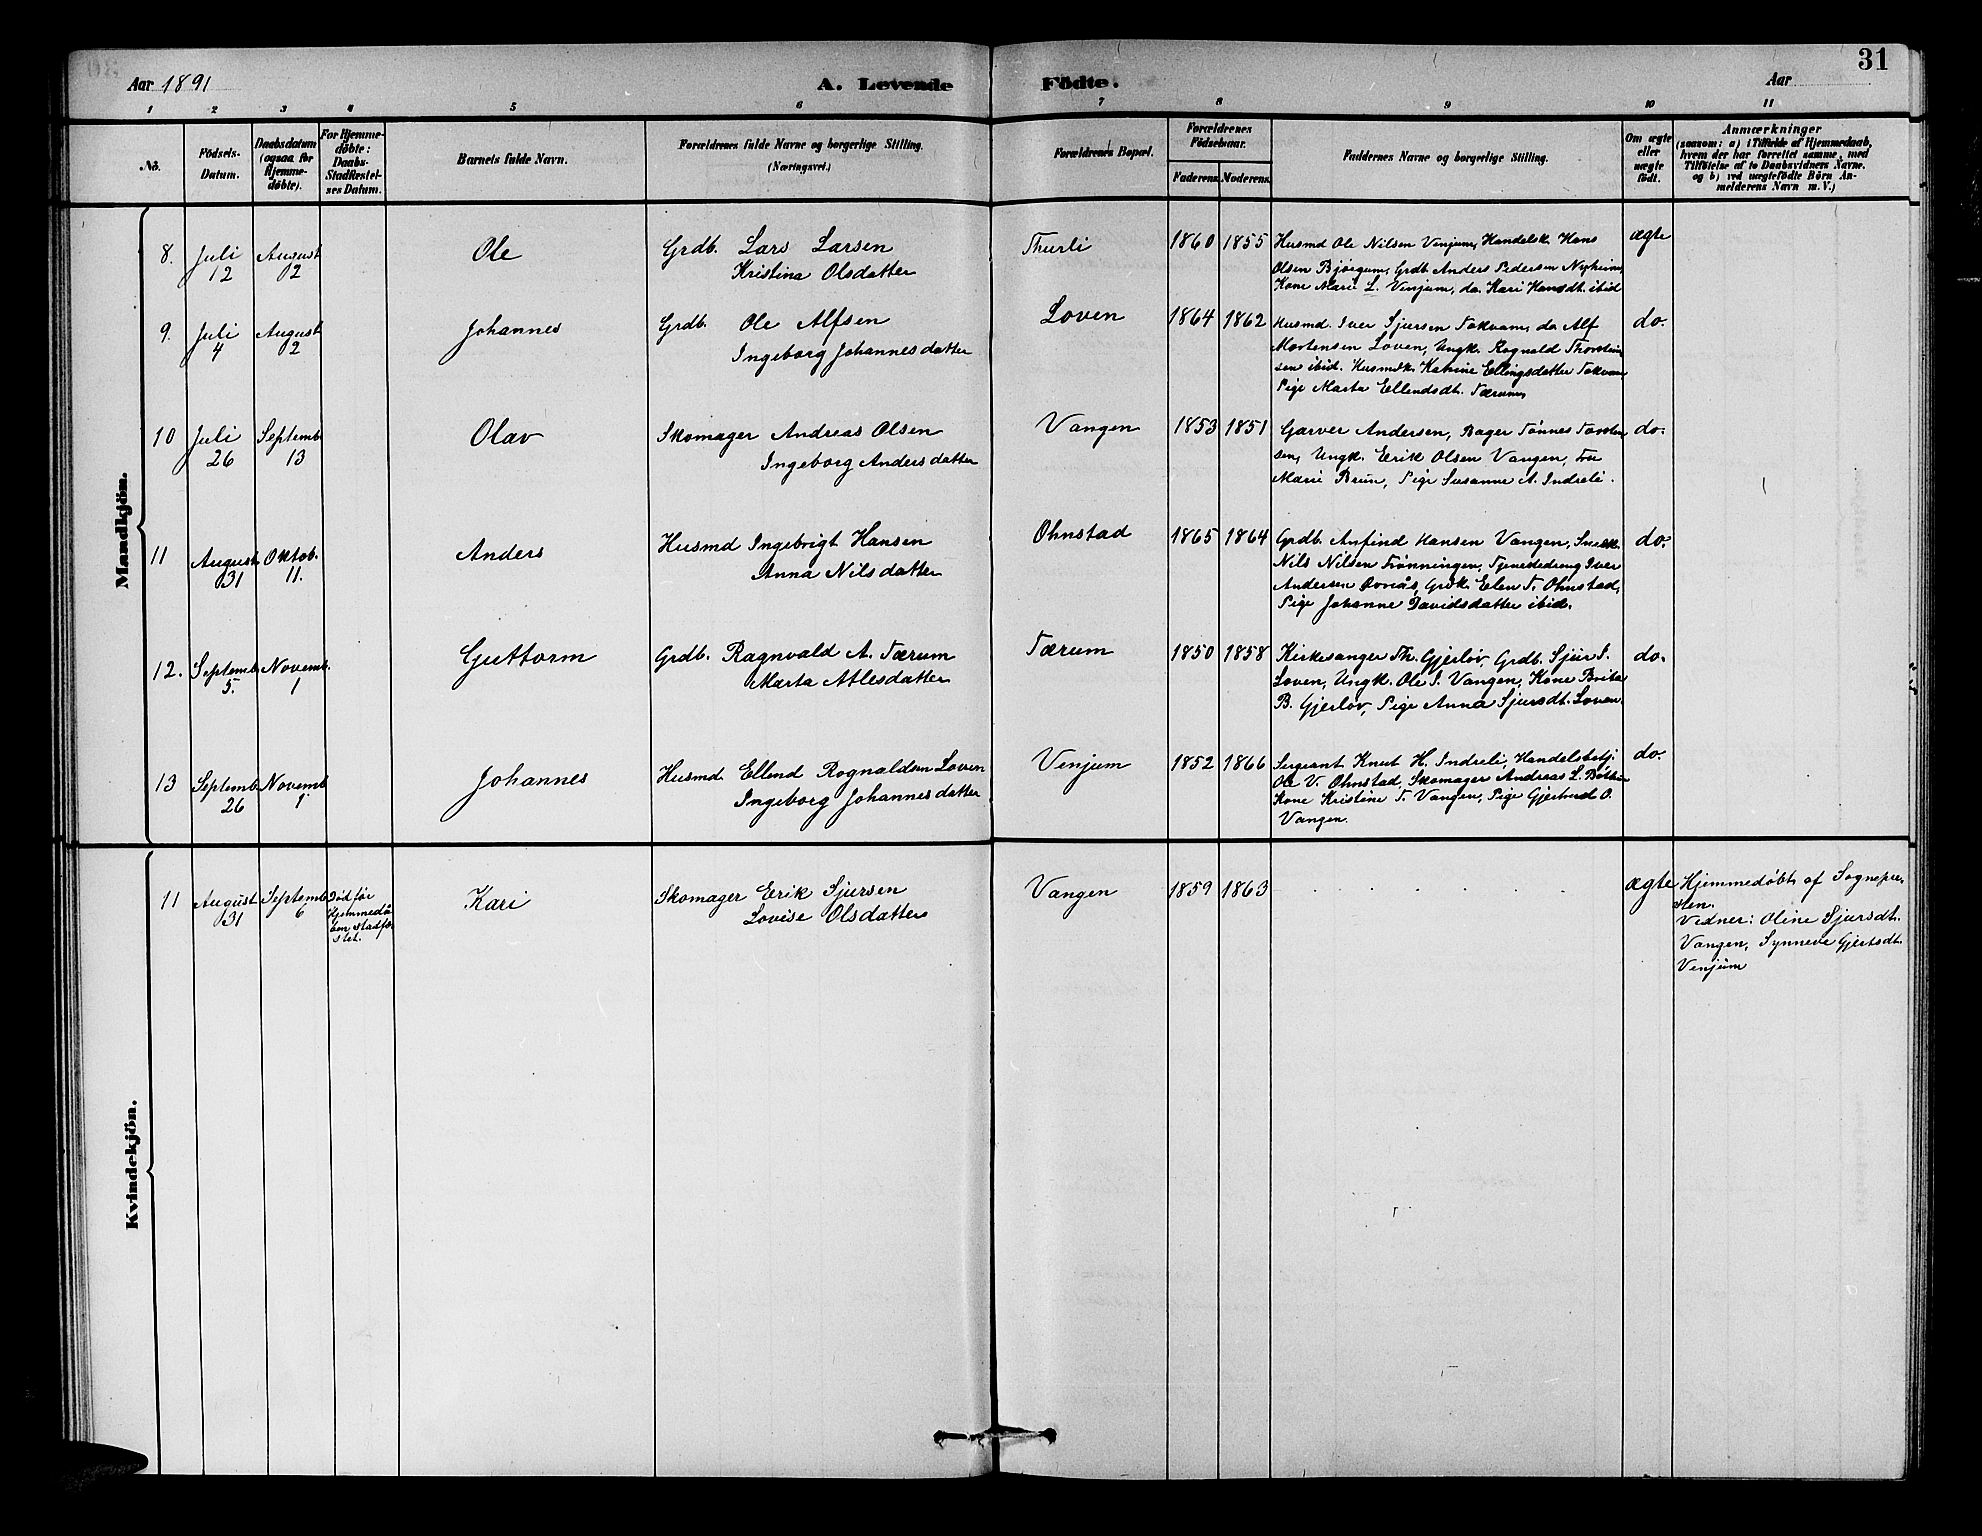 31
Aar 1891
A. Levende Födte.
Aar
1 2 3 4 5 6 7 8 9 10 11
No.
Födsels-
Datum.
Daabsdatum
(ogsaa for
Hjemme-
døbte).
For Hjemme-
døbte:
Daabs-
Stadfæstel-
ses Datum.
Barnets fulde Navn.
Forældrenes fulde Navne og borgerlige Stilling.
(Næringsvei.)
Forældrenes Bopæl.
Forældrenes
Födselsaar.
Faderens. Moderens.
Faddernes Navne og borgerlige Stilling.
Om ægte
eller
uægte
født.
Anmærkninger
(saasom: a) i Tilfælde af Hjemmedaab,
hvem der har forrettet samme, med
Tilföielse af to Daabsvidners Navne.
og b) ved uægtefödte Börn An-
melderens Navn m. V.)
Mandkjön.
8. Juli
12
August
2
Ole
Grdb. Lars Larsen
Kristina Olsdatter
Thurli
1860 1855
Husmd Ole Nilsen Venjum, Handelsk. Hans
Olsen Bjørgum, Grdb. Anders Pedersen Nyheim,
Kone Marie L. Venjum, do. Kari Hansdt. ibid
ægte
9. Juli
4
August
2
Johannes
Grdb. Ole Alfsen
Ingeborg Johannesdatter
Loven
1864 1862
Husmd. Iver Sjursen Tokvam, do Alf
Mortensen Loven, Ungk. Rognald Thorstein
sen ibid. Husmdk. Katrine Ellingsdatter Tokvam
Pige Marta Ellendsdt. Tærum,
do.
10 Juli
26
Septemb.
13
Olav
Skomager Andreas Olsen
Ingeborg Andersdatter
Vangen
1853 1851
Garver Andersen, Bager Tønnes Torsten
sen, Ungk. Erik Olsen Vangen, Fru
Marie Brun, Pige Susanne A. Indreli.
do.
11 August
31
Oktob.
11.
Anders
Husmd Ingebrigt Hansen
Anna Nilsdatter
Ohnstad
1865 1864
Grdb. Anfind Hansen Vangen,
Nils Nilsen Frønningen, Tjenestedreng Iver
Andersen Grdk. Elen T. Ohnstad,
Pige Johanne Davidsdatter ibid.
do.
12. Septemb.
5.
Novemb.
1
Guttorm
Grdb. Ragnvald A. Tærum
Marta Atlesdatter
Tærum
1850 1858
Kirkesanger Th. Gjerløv, Grdb. Sjur S.
Loven, Ungk. Ole S. Vangen, Kone Brita
B. Gjerløv, Pige Anna Sjursdt. Loven.
do.
13 Septemb
26
Novemb
1
Johannes
Husmd Ellend Rognaldsen Loven
Ingeborg Johannesdatter
Venjum
1852 1866
Sergeant Knut H. Indreli, Handelsbetj.
Ole V. Ohnstad, Skomager Andreas L.
Kone Kristine T. Vangen, Pige Gjertrud O.
Vangen.
do.
Kvindekjön.
11 August
31
Septemb
6
Død før
Hjemmedå
ben stadfæ
stet.
Kari
Skomager Erik Sjursen
Lovise Olsdatter
Vangen
1859 1863
ægte
Hjemmedøbt af Sognepræ-
sten.
Vidner: Oline Sjursdt.
Vangen, Synneve Gjertsdt.
Venjum